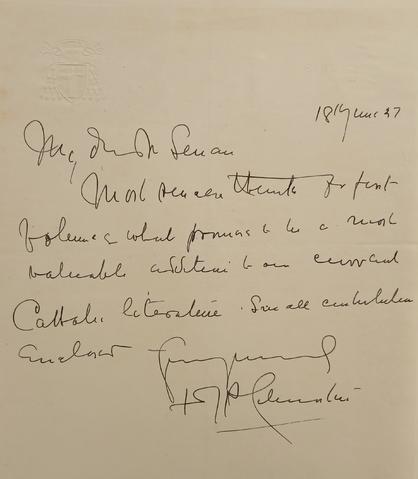 18 June 37
My dear Mr Senan
Most sincere thanks for first
volume of what promises to be a most
valuable addition to our current
Catholic literature. Small contribution
enclosed